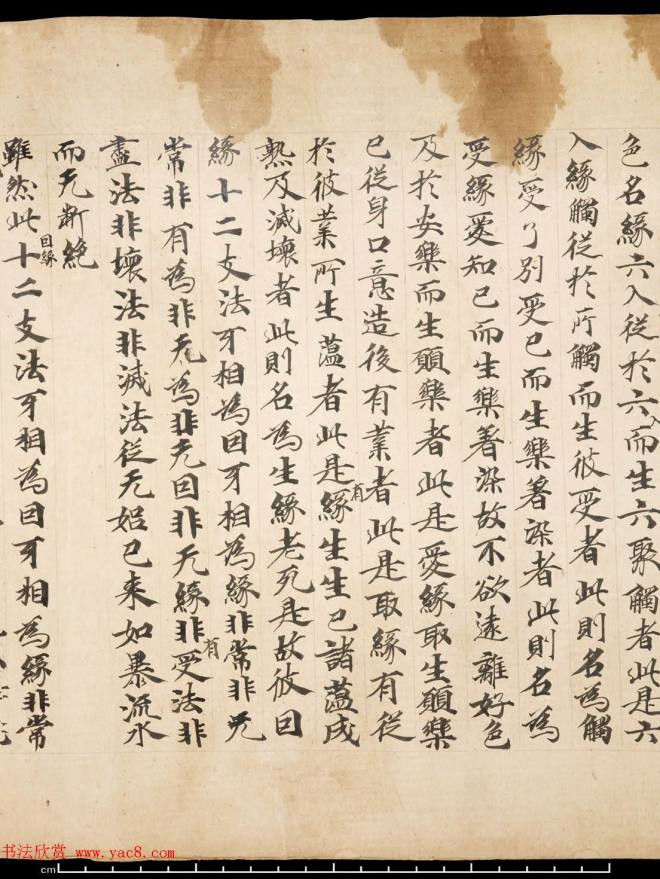 色名緣六入從於六入而生六聚觸者此是六
入緣觸從於所觸而生彼受者此則名為觸
緣受了別受已而生樂著染者此則名為
受緣愛知已而生樂著染故不欲遠離好色
及於安樂而生願樂者此是愛緣取生願樂
已從身口意造後有業者此是取緣有從
於彼業所生蘊者此是有緣生生已諸蘊成
熟及滅壞者此則名為生緣老死是故彼因
緣十二支法牙相為因牙相為緣非常非无
常非有為非无為非无因非无緣非有受法非
盡法非壞法非滅法從无始已来如暴流水
而无斷絕
雖然此因緣十二支法牙相為因牙相為緣非常
书法欣赏 www.yac8.com
cm